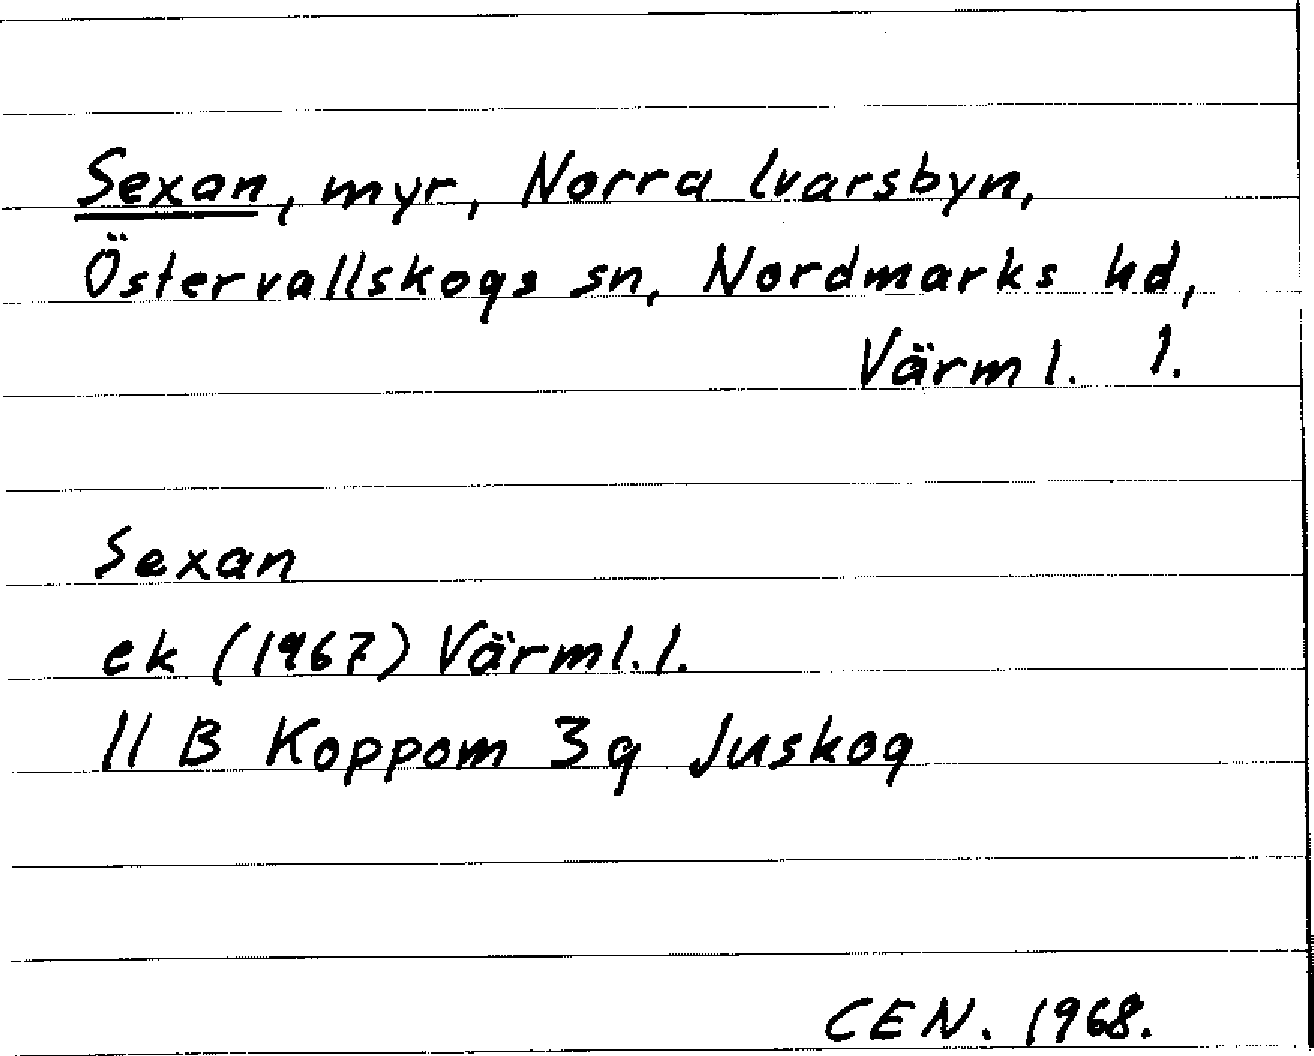 Sexan, myr, Norra Ivarsbyn,
Östervallskogs sn, Nordmarks hd,
Värml. l.
Sexan
ek (1967) Värml. l.
11 B Koppom 3 g Juskog
CEN. 1968.